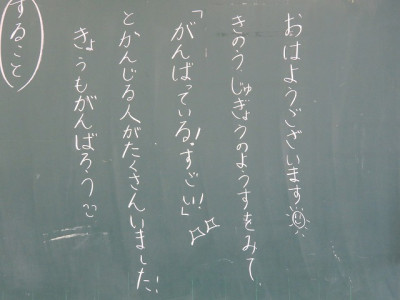 おはようございます
きのう じゅぎょうのようすをみて、
「がんばっている!すごい!!」
とかんじる人がたくさんいました!
きょうもがんばろう
すること